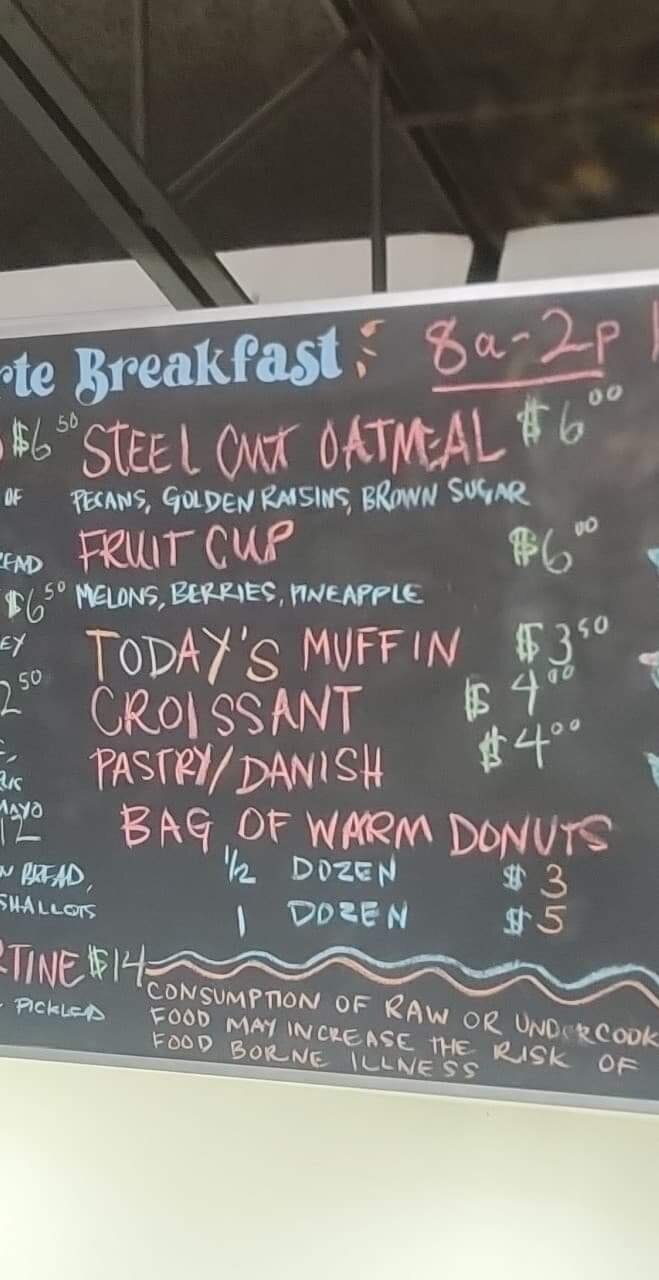 rte Breakfast 8a-2p
$6.50 STEEL CUT OATMEAL $6.00
OF PECANS, GOLDEN RAISINS, BROWN SUGAR
FRUIT CUP $6.00
$6.50 MELONS, BERRIES, PINEAPPLE
EY TODAY'S MUFFIN $3.50
2.50 CROISSANT $4.00
PASTRY/DANISH $4.00
MAYO
12 BAG OF WARM DONUTS
BREAD, 1/2 DOZEN $3
SHALLOTS 1 DOZEN $5
RTINE $14
PICKLED
CONSUMPTION OF RAW OR UNDERCOOK
FOOD MAY INCREASE THE RISK OF
FOOD BORNE ILLNESS